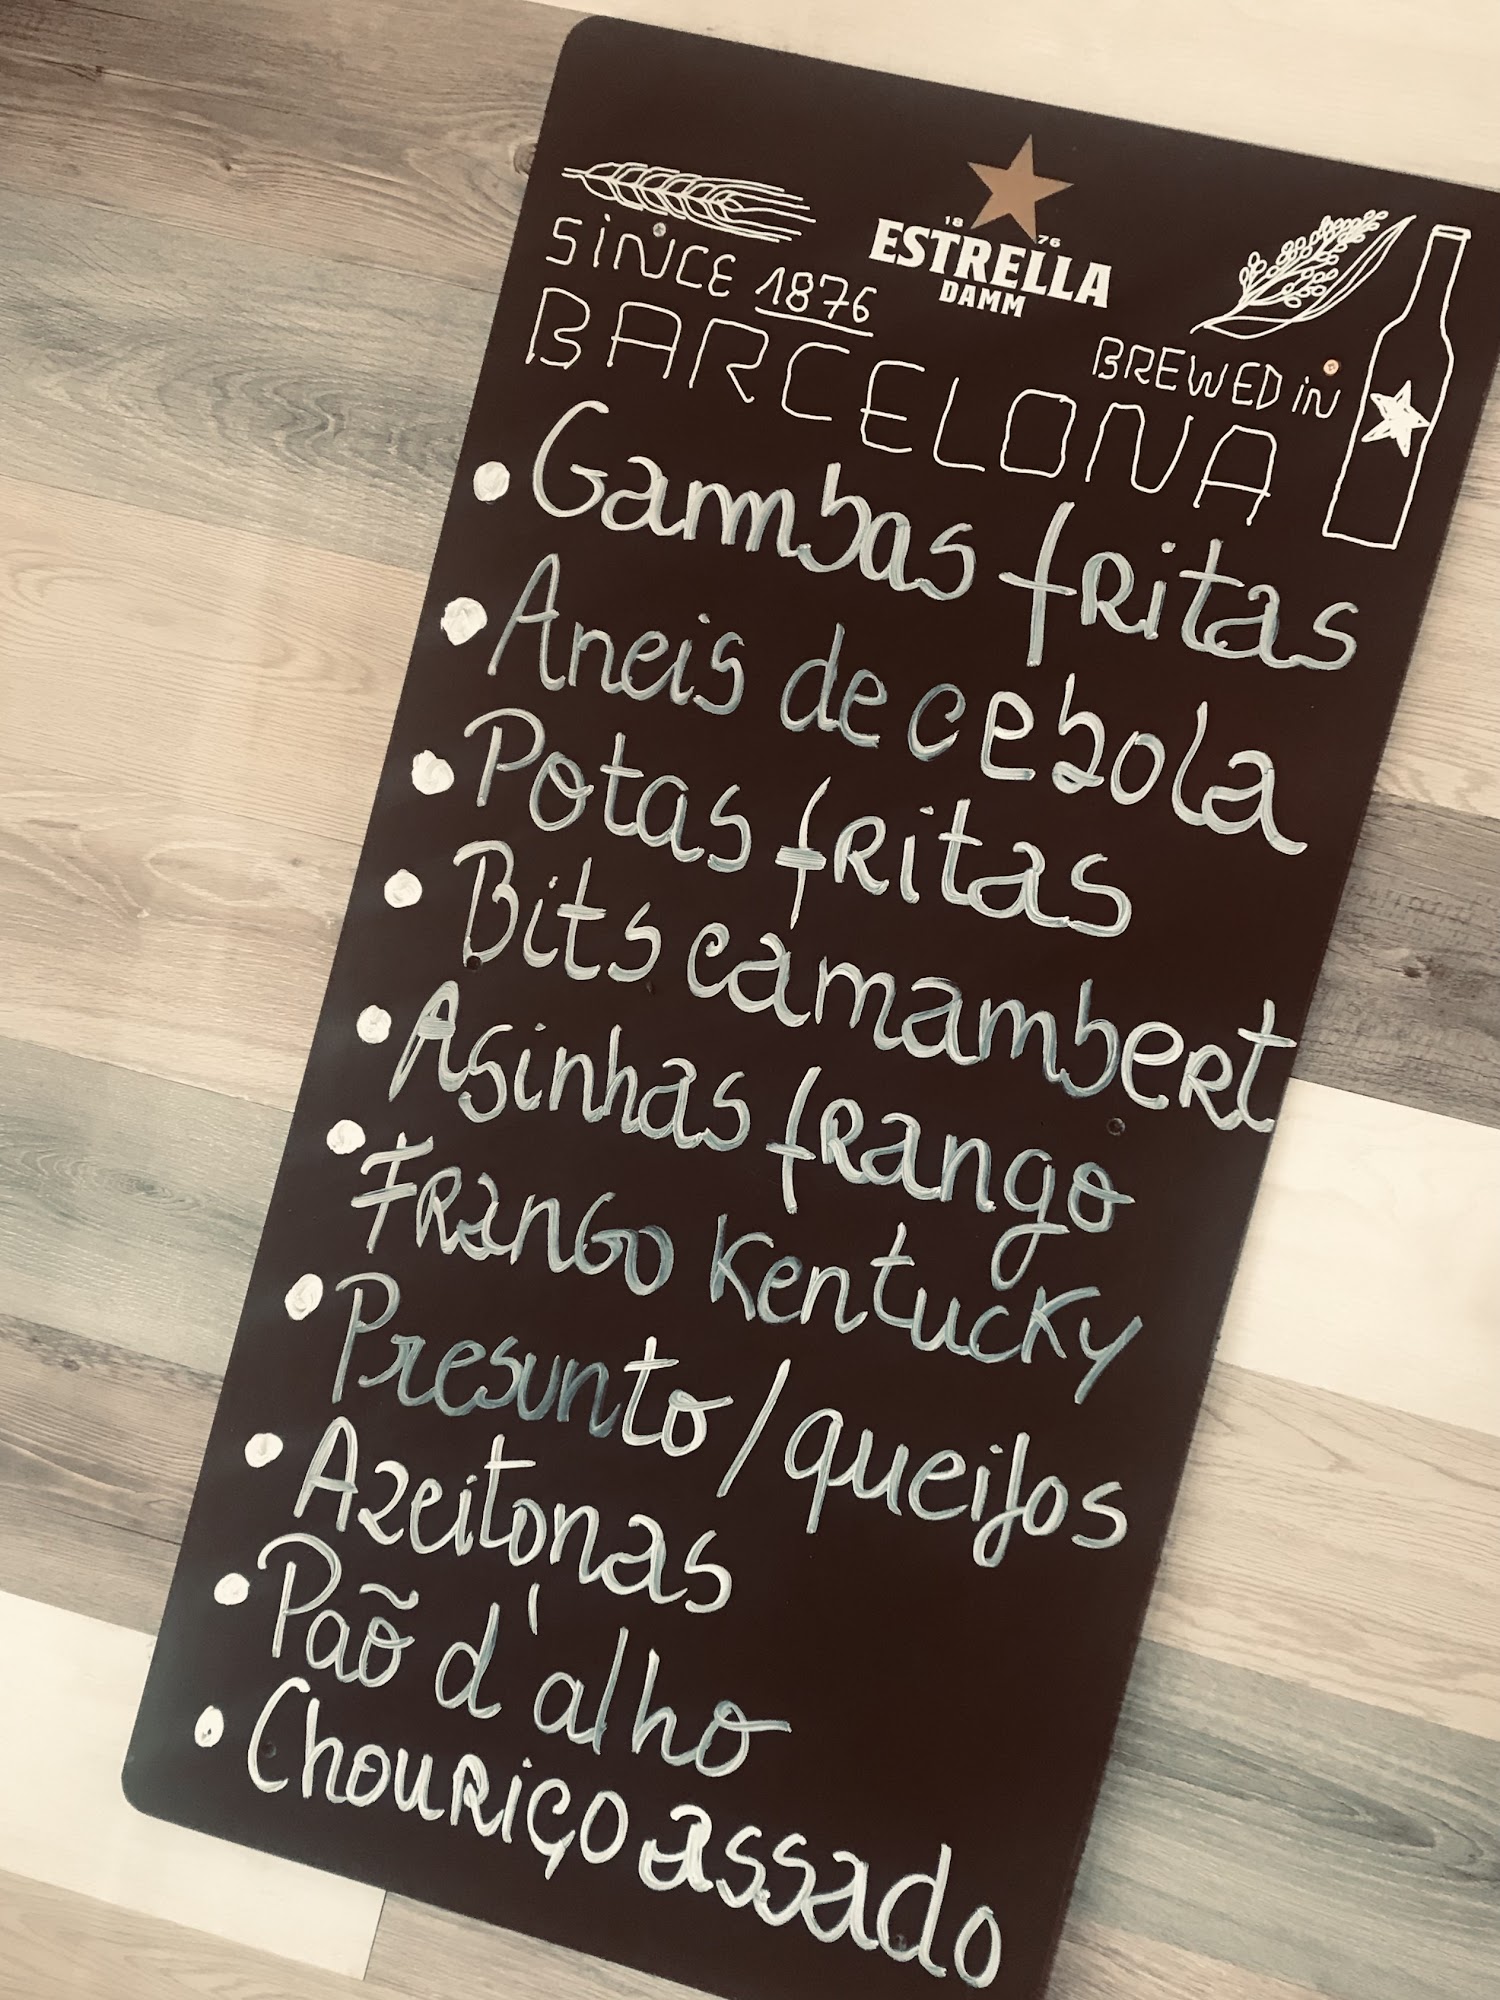 18 76
ESTRELLA
DAMM
SiNCE 1876
BREWED iN
BARCELONA
• Gambas fritas
• Aneis de cebola
• Potas fritas
• Bits camambert
• Asinhas frango
• Frango Kentucky
• Presunto / queijos
• Azeitonas
• Paõ d'alho
• Chouriço assado